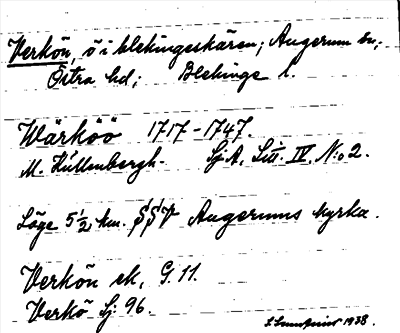 Verkön, ö i blekingeskären; Augerum sn;
Östra hd; Blekinge l.
Wärköö 1717-1747.
M. Kullenbergh. Sj.A. Litt. IV, N:o 2.
Läge 5 1/2 km. SSV Augerums kyrka.
Verkön ek. G. 11.
Verkö Sj. 96.
1938.